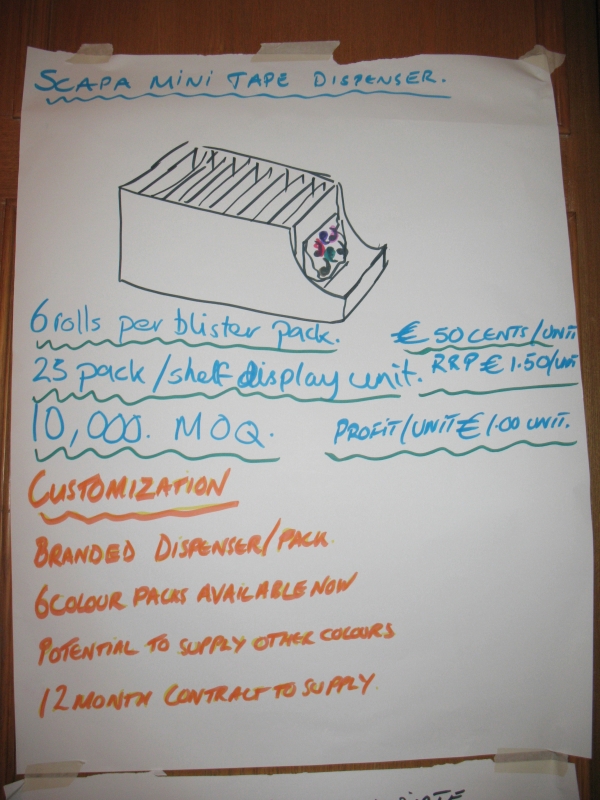 SCAPA MINI TAPE DISPENSER.
6 rolls per blister pack.
€ 50 CENTS/UNIT
25 pack/shelf display unit.
RRP € 1.50/UNIT
10,000. MOQ.
PROFIT/UNIT € 1.00 UNIT.
CUSTOMIZATION
BRANDED DISPENSER/PACK
6 COLOUR PACKS AVAILABLE NOW
POTENTIAL TO SUPPLY OTHER COLOURS
12 MONTH CONTRACT TO SUPPLY